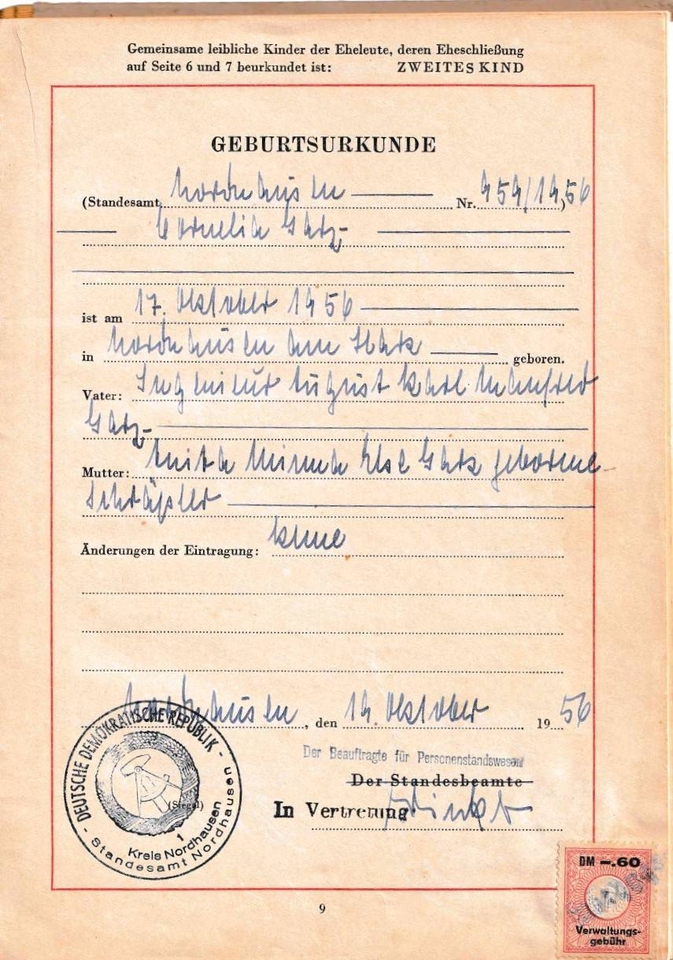 Gemeinsame leibliche Kinder der Eheleute, deren Eheschließung
auf Seite 6 und 7 beurkundet ist: ZWEITES KIND
GEBURTSURKUNDE
(Standesamt Nordhausen Nr. 954/1956)
Cornelia Garz
ist am 17. Oktober 1956
in Nordhausen am Harz geboren.
Vater: Ingenieur August Karl Manfred
Garz
Mutter: Anita Minna Else Garz geborene
Änderungen der Eintragung: keine
Nordhausen, den 19. Oktober 1956
Der Beauftragte für Personenstandswesen
Der Standesbeamte
(Siegel)
In Vertretung
DEUTSCHE DEMOKRATISCHE REPUBLIK
1
Kreis Nordhausen
Standesamt Nordhausen
9
DM -.60
Verwaltungs-
gebühr